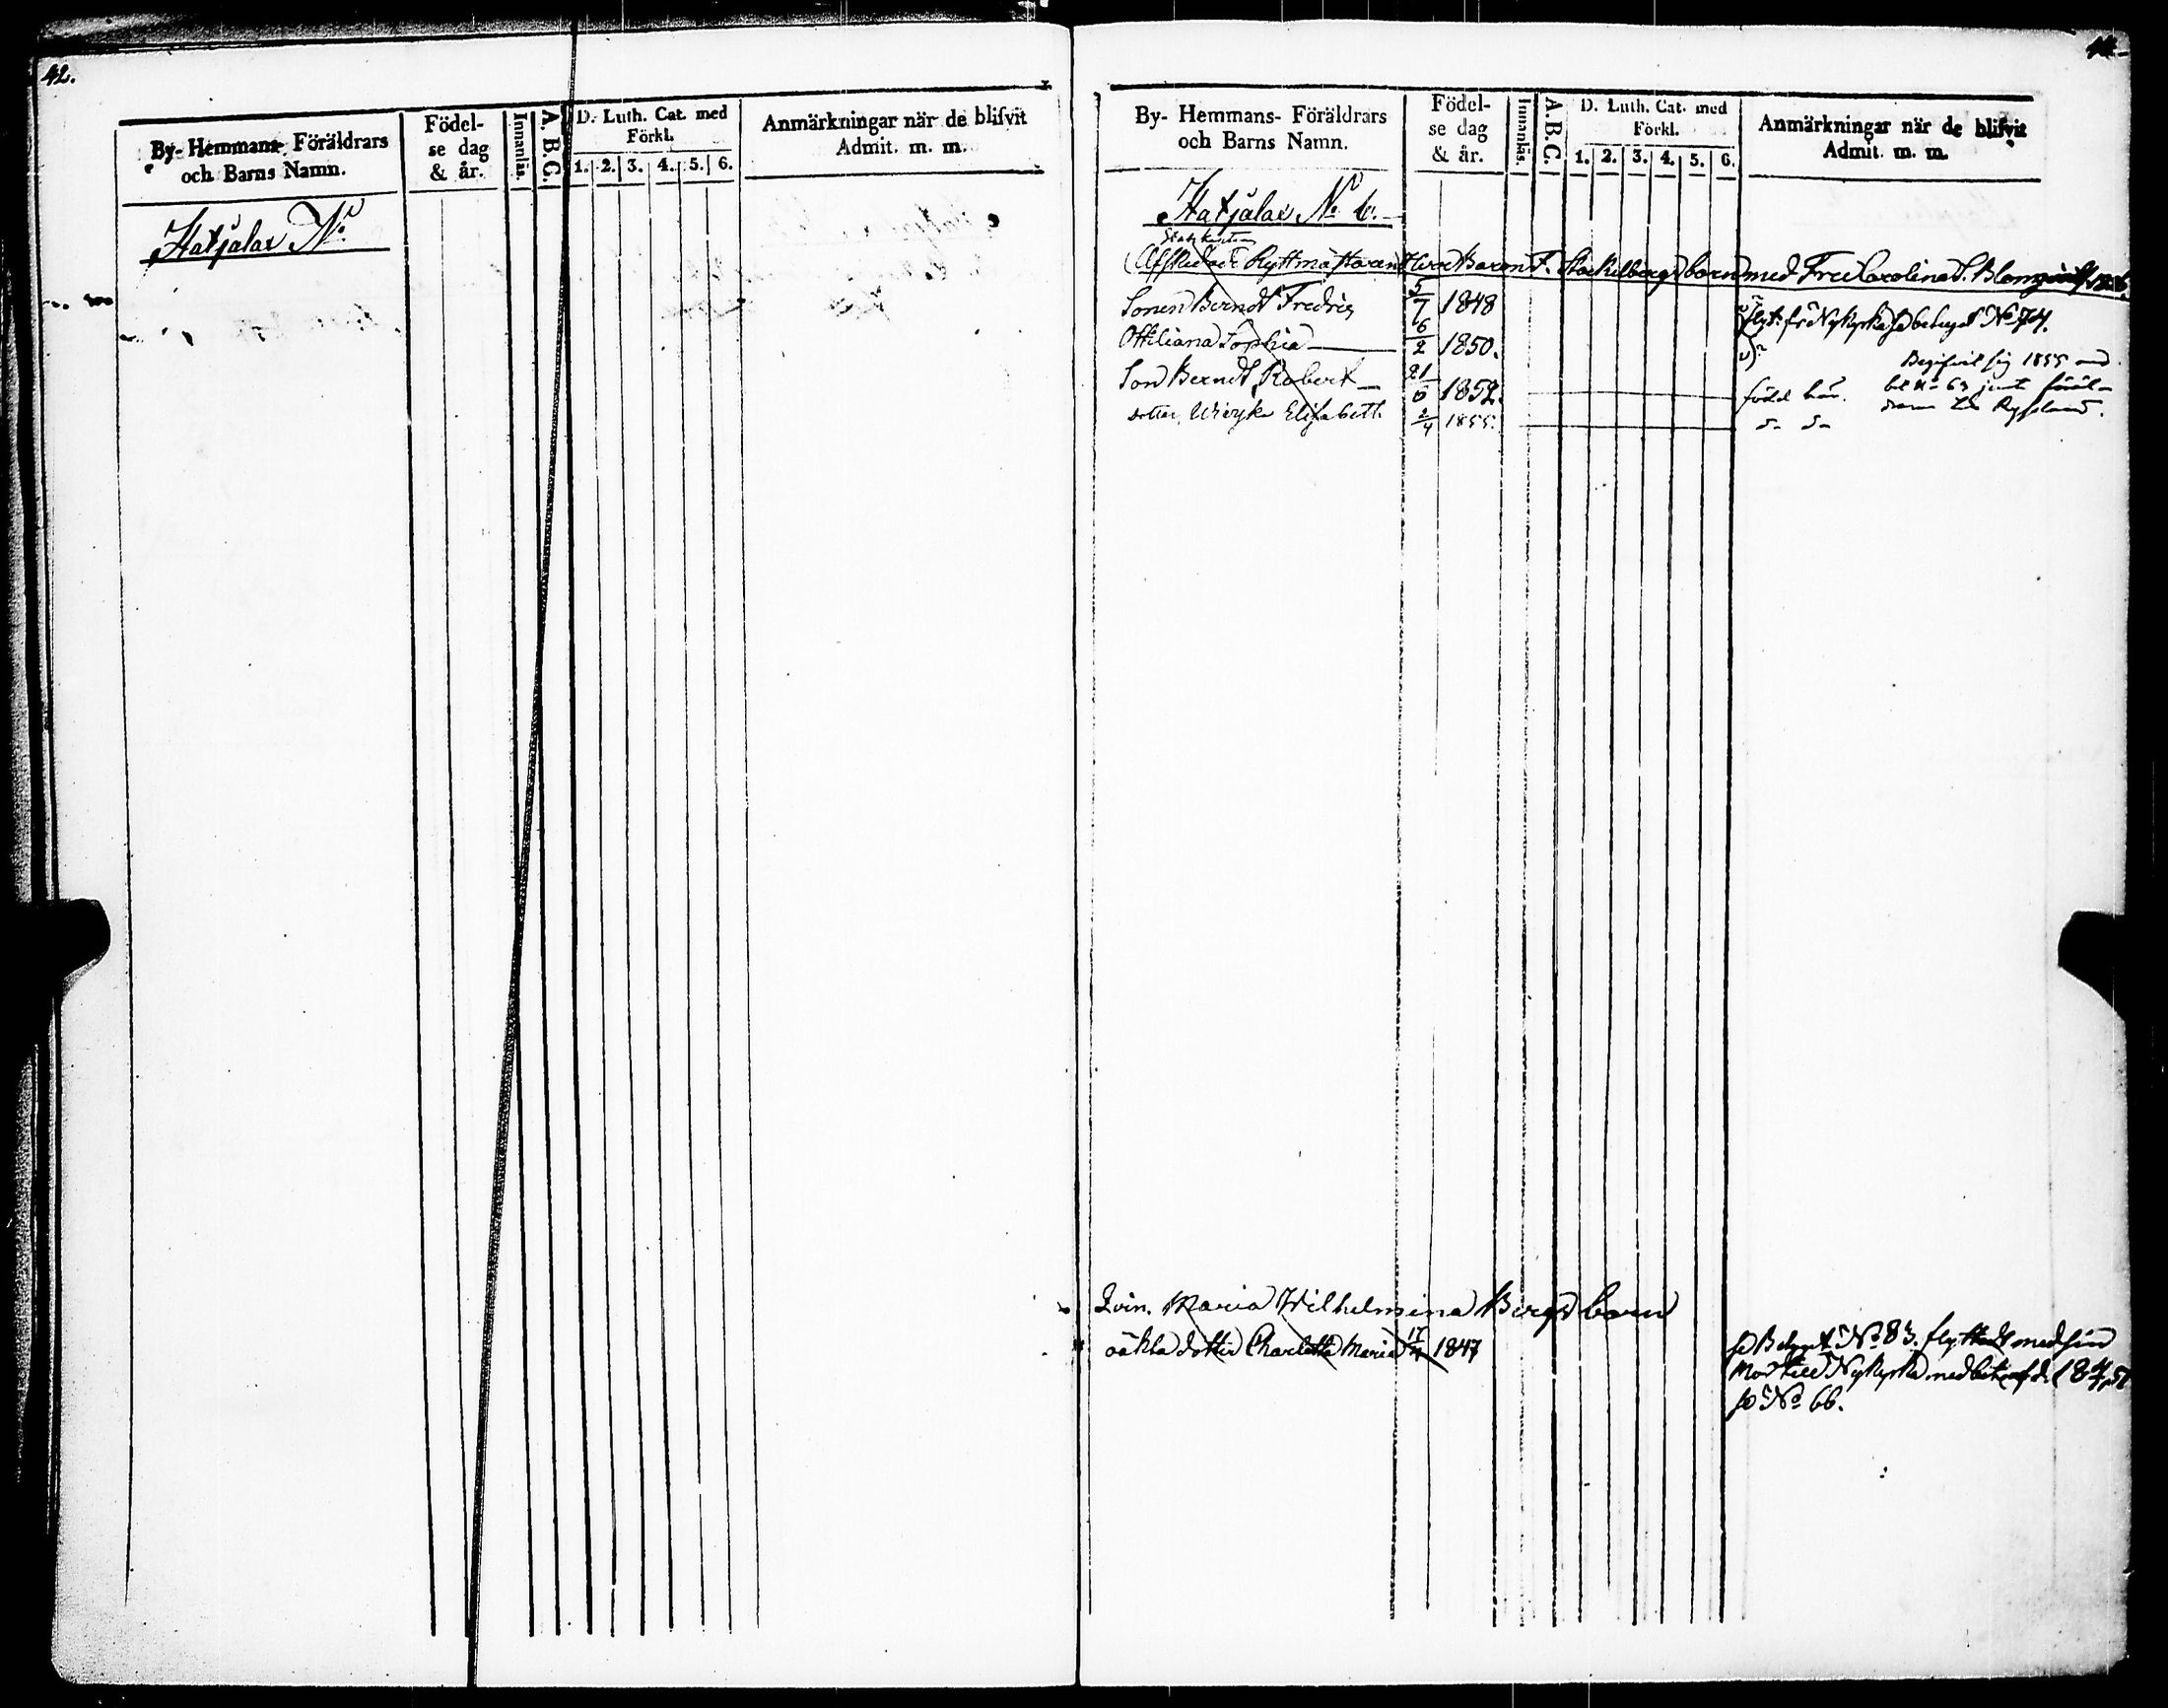 42.
By- Hemmans- Föräldrars
och Barns Namn.
Födel-
se dag
& år.
Innanläs.
A. B. C.
D. Luth. Cat. med
Förkl.
1. 2. 3. 4. 5. 6.
Anmärkningar när de blifvit
Admit. m. m.
Hatjalax No
By- Hemmans- Föräldrars
och Barns Namn.
Födel-
se dag
& år.
Innanläs.
A. B. C.
D. Luth. Cat. med
Förkl.
1. 2. 3. 4. 5. 6.
Anmärkningar när de blifvit
Admit. m. m.
Hatjalax No 6.
Afskedade Ryttmästaren Baron F. Stackelbergs barn med Fru Carolina S.
Sonen Berndt Fredric 5/7 1848 flyt. fr Nykyrka betyget No 74.
Ottiliana Sophia 6/2 1850.
Son Berndt Robert 21/6 1852. född här.
Begifvit sig 1855 med
bet No 63 jemte föräl-
drarna till Ryssland.
dotter Elisabeth 2/4 1855. d- d-
Qvin. Maria Wilhelmina Bergs barn
oäkta dotter Charlotta Maria 17/4 1847
Betyget No 83. flyttadt med sin
Mor till Nykyrka med bet af d.
No 66.